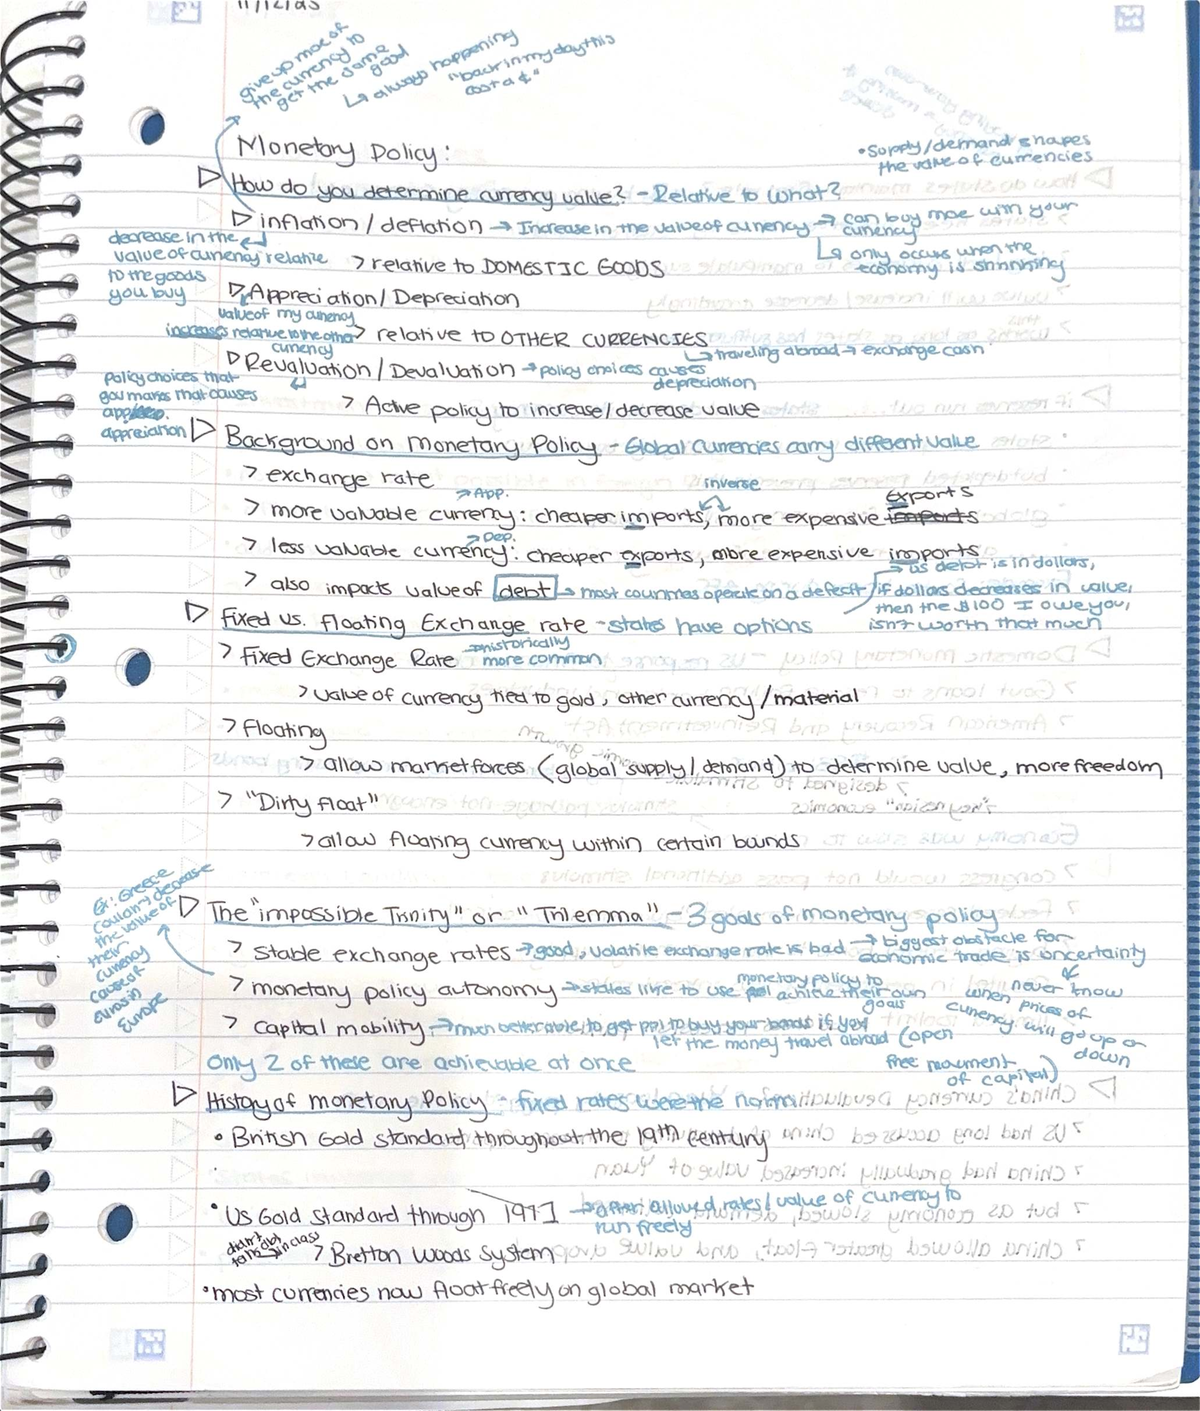 11/12/25
give up more of
the currency to
get the same
good
↳ always happening
"back in my day this
cost a ¢"
Monetary Policy:
• Supply/demand shapes
the value of currencies
▷ How do you determine currency value? - Relative to what?
▷ inflation / deflation → Increase in the value of currency → can buy more with your
currency
↳ only occurs when the
economy is shrinking
decrease in the
value of currency relative
to the goods
you buy
> relative to DOMESTIC GOODS
▷ Appreciation/Depreciation
value of my currency
increases relative to the other
currency
> relative to OTHER CURRENCIES
↳ traveling abroad → exchange cash
▷ Revaluation / Devaluation → policy choices causes
depreciation
policy choices that
gov makes that causes
appreciation
> Active policy to increase/decrease value
▷ Background on Monetary Policy - Global currencies carry different value
> exchange rate
> App.
inverse
> more valuable currency: cheaper imports, more expensive imports exports
> Dep.
> less valuable currency: cheaper exports, more expensive imports
> also impacts value of debt → most countries operate on a defecit / if dollars decreases in value,
→ us debt is in dollars,
then the $100 I owe you,
isn't worth that much
▷ Fixed vs. Floating Exchange rate - states have options
> Fixed Exchange Rate → historically
more common
> value of currency tied to gold, other currency/material
> Floating
> allow market forces (global supply/demand) to determine value, more freedom
> "Dirty float"
> allow floating currency within certain bounds
Ex: Greece
couldn't decrease
the value of
their
currency
cause of
euros in
Europe
▷ The "impossible Trinity" or "Trilemma" - 3 goals of monetary policy
> Stable exchange rates → good, volatile exchange rate is bad → biggest obstacle for
economic trade is uncertainty
never know
when prices of
currency will go up or
down
> monetary policy autonomy → states like to use monetary policy to
achieve their own
goals
> Capital mobility → much better able to get ppl to buy your bonds if you
let the money travel abroad (open
free movement
of capital)
Only 2 of these are achievable at once
▷ History of monetary Policy - fixed rates were the norm
• British Gold standard throughout the 19th century
• US Gold standard through 1971 → after: allowed rates/value of currency to
run freely
didn't
talk abt
in class
> Bretton Woods System
• most currencies now float freely on global market